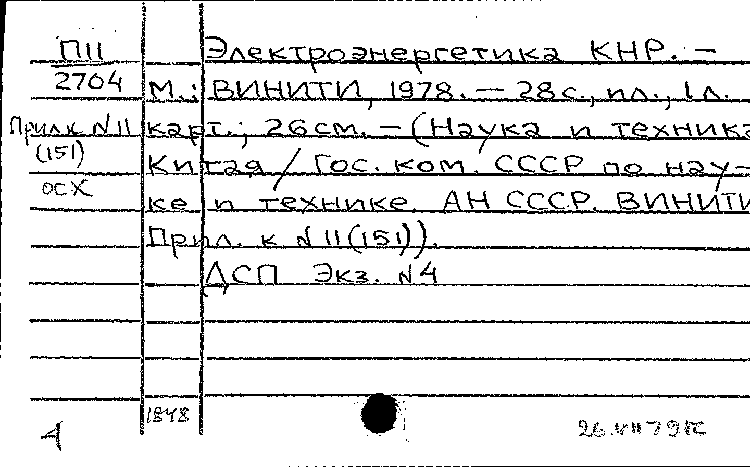 П11
2704
Прил.к N11
(151)
ОСХ
Электроэнергетика КНР. –
М.: ВИНИТИ, 1978. – 28 с., ил., 1 л.
карт.; 26 см. – (Наука и техника
Китая / Гос. ком. СССР по нау-
ке и технике. АН СССР. ВИНИТИ
Прил. к N 11 (151)).
ДСП Экз. N4
1848
26.VII 79